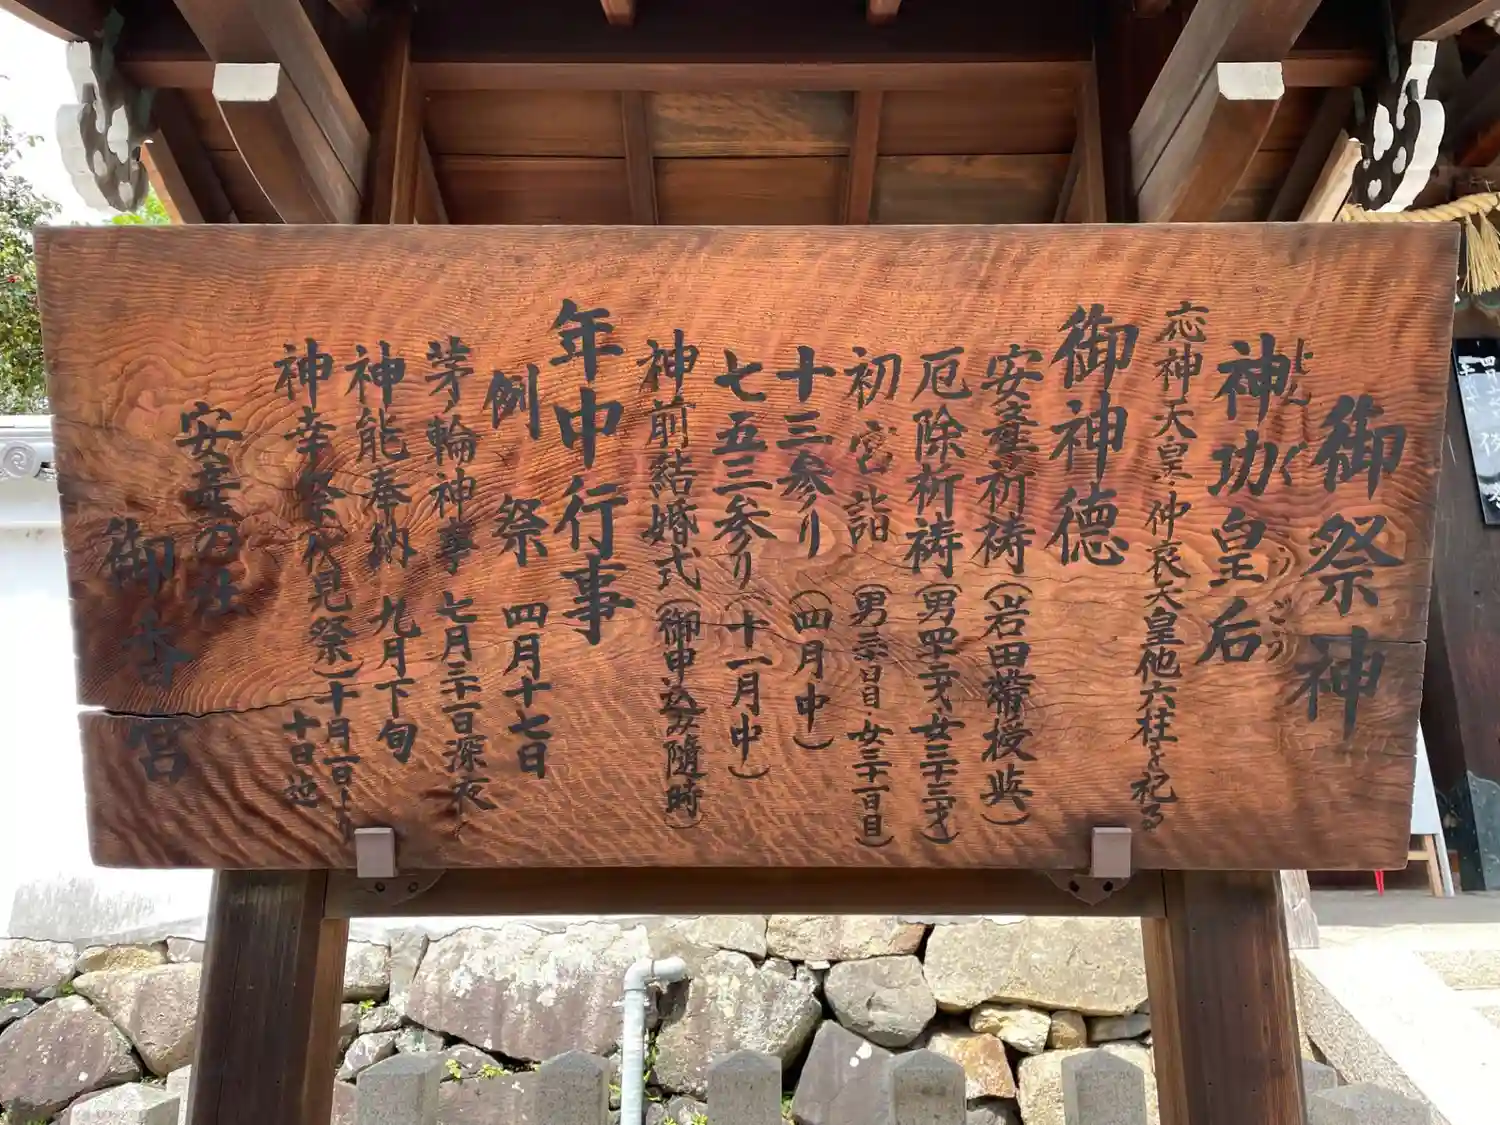 御祭神
神功皇后
じんぐうこうごう
応神天皇・仲哀天皇他六柱を祀る
御神徳
安産祈祷(岩田帯授与)
厄除祈祷(男四十二才、女三十三才)
初宮詣(男三十日目・女三十一日目)
十三参り(四月中)
七五三参り(十一月中)
神前結婚式(御申込み随時)
年中行事
例祭 四月十七日
茅ノ輪神事 七月三十一日深夜
神能奉納 九月下旬
神幸祭(花傘祭)十月一日より
十日迄
安産の社
御香宮